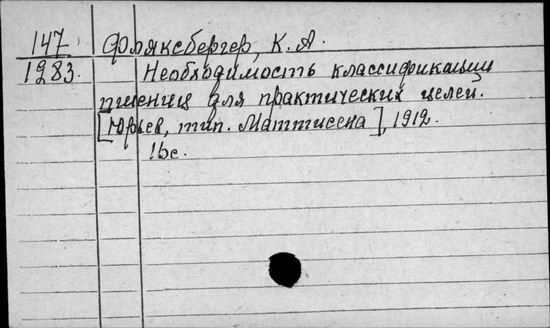 147 Фляксбергер, К. А.
1283. Необходимость классификации
пшениц для практических целей.
[Юрьев, тип. Маттисена], 1912.
16с.